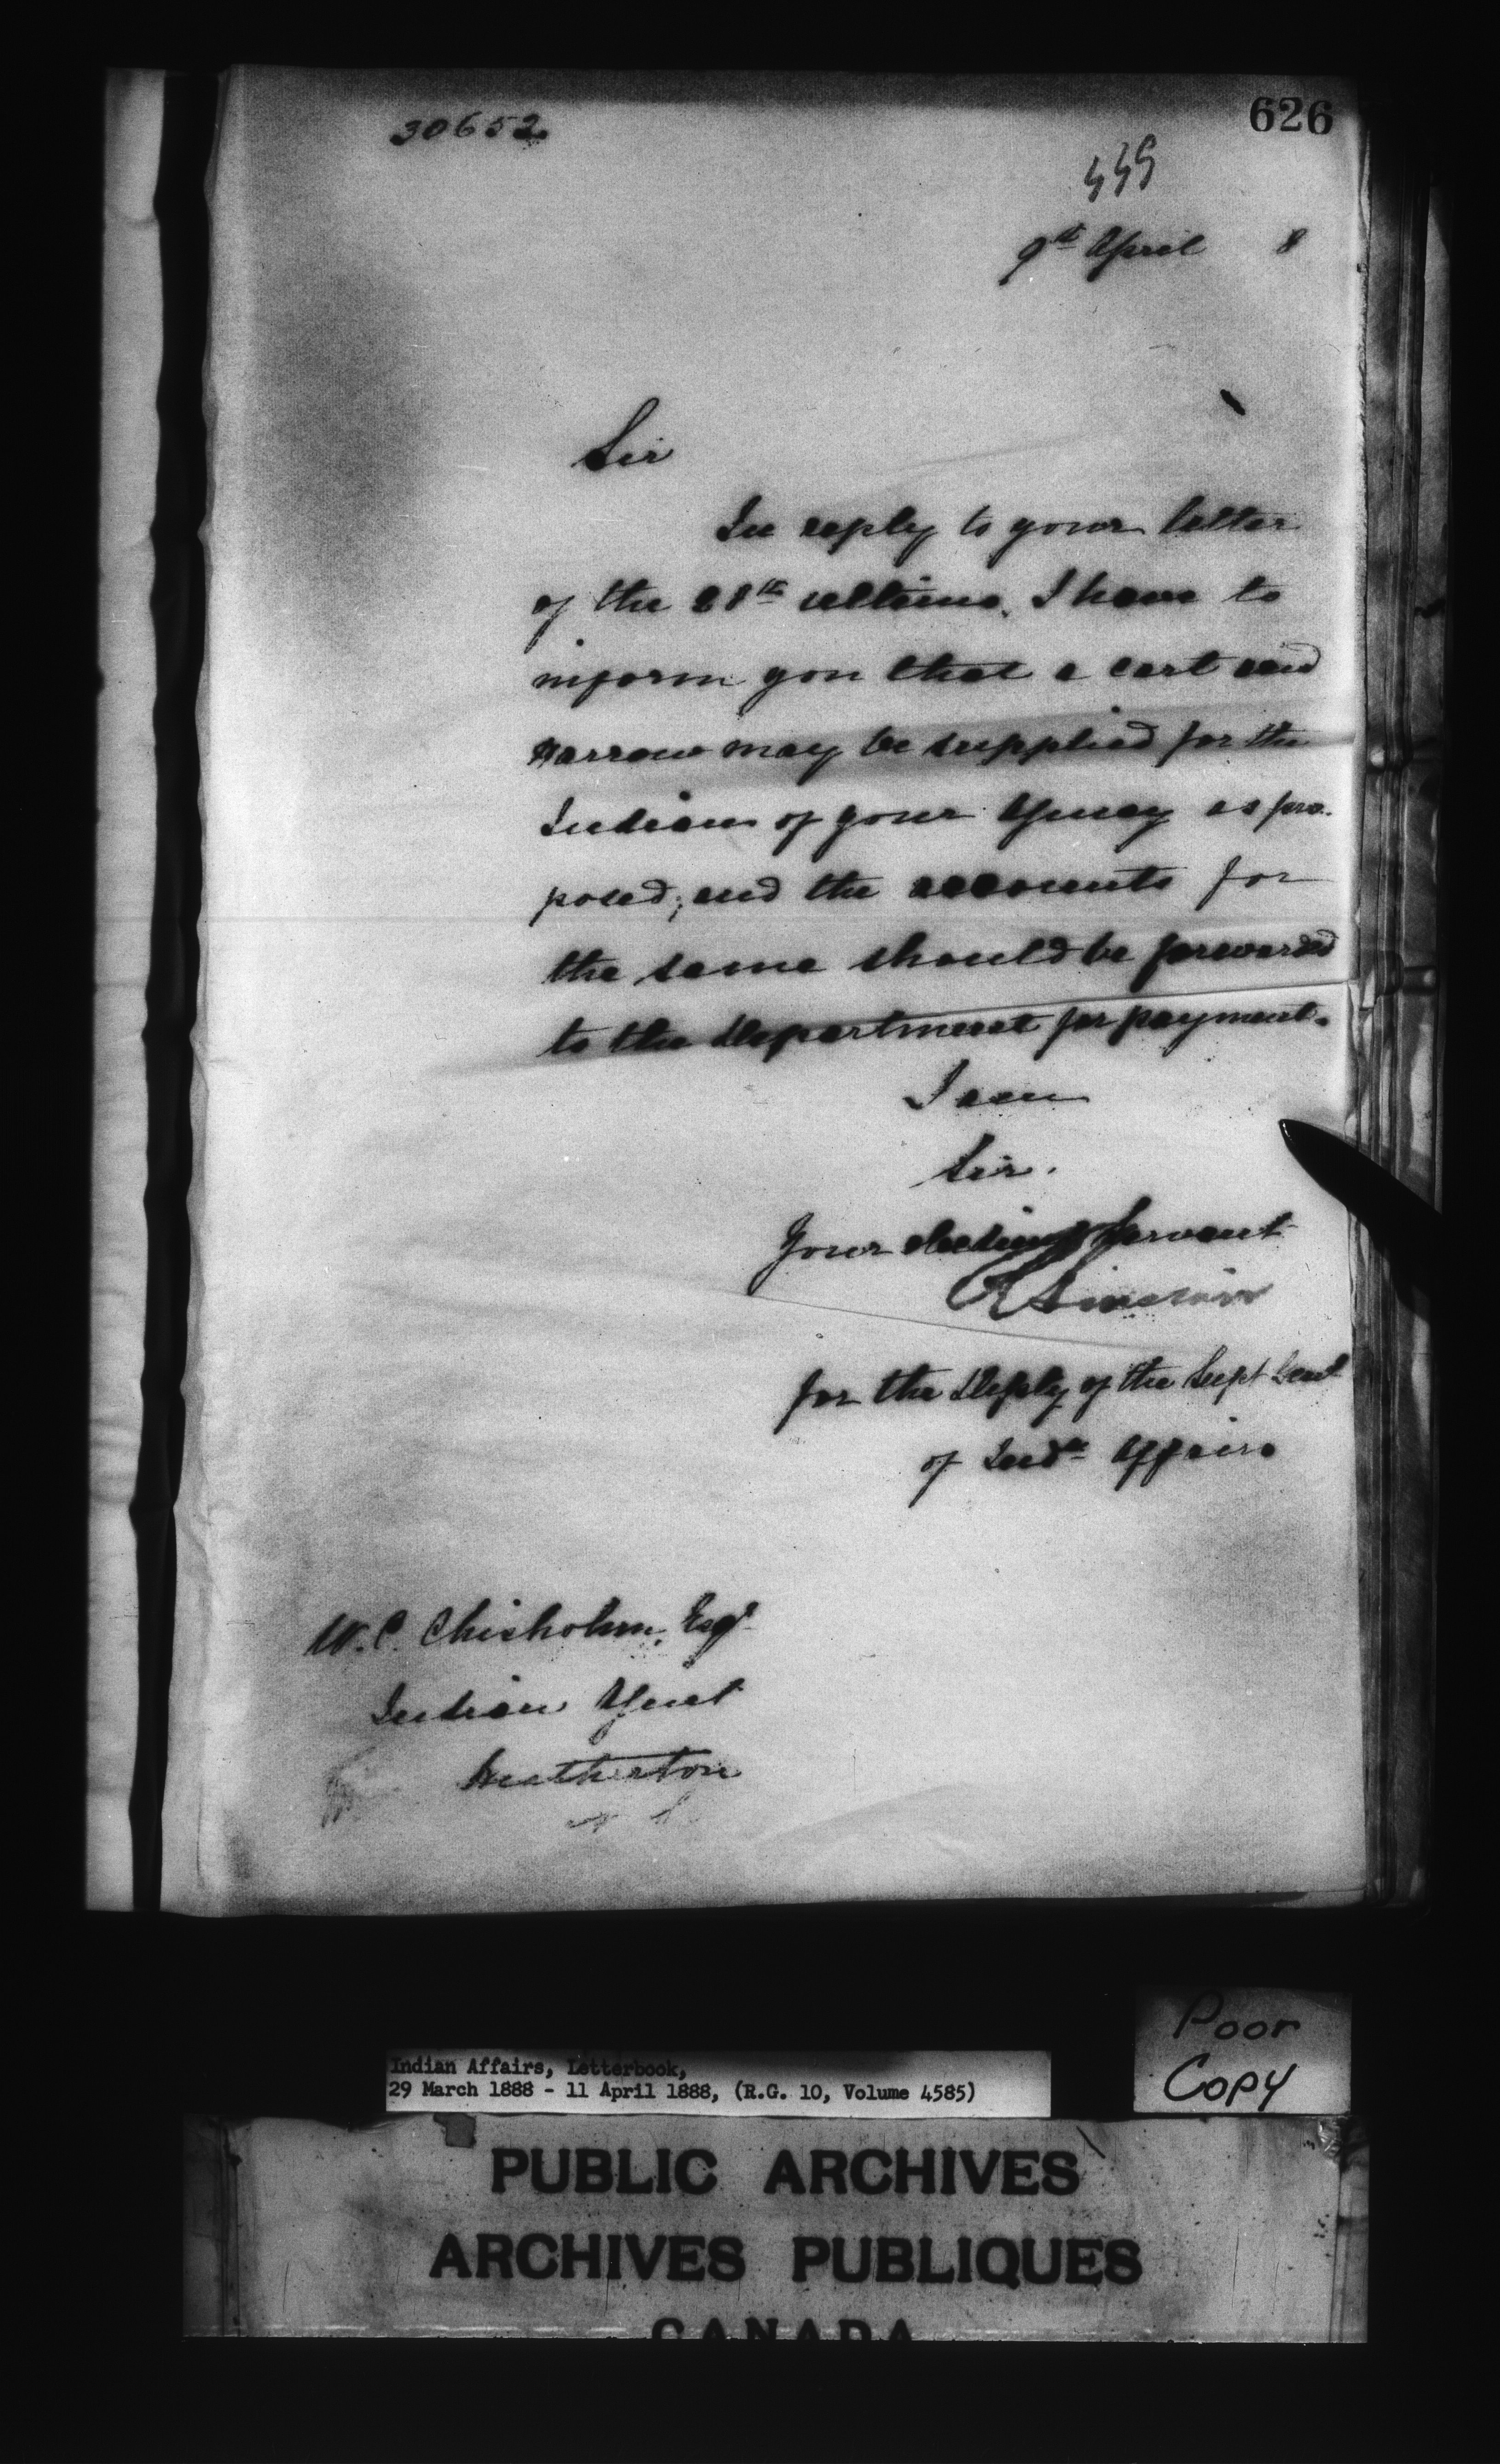 626
30652
9th April 8
Sir
In reply to your letter
of the 28th ultimo, I have to
inform you that a cart and
Harrow may be supplied for the
Indians of your Agency as pro-
posed; and the accounts for
the same should be forwarded
to the Department for payment.
I am
Sir.
Your obedient Servant
R Sinclair
for the Deputy of the Supt Genl
of Indn Affairs
W. C. Chisholm, Esqr
Indian Agent
Heatherton
N S.
Poor
Copy
Indian Affairs, Letterbook,
29 March 1888 - 11 April 1888, (R.G. 10, Volume 4585)
PUBLIC ARCHIVES
ARCHIVES PUBLIQUES
CANADA